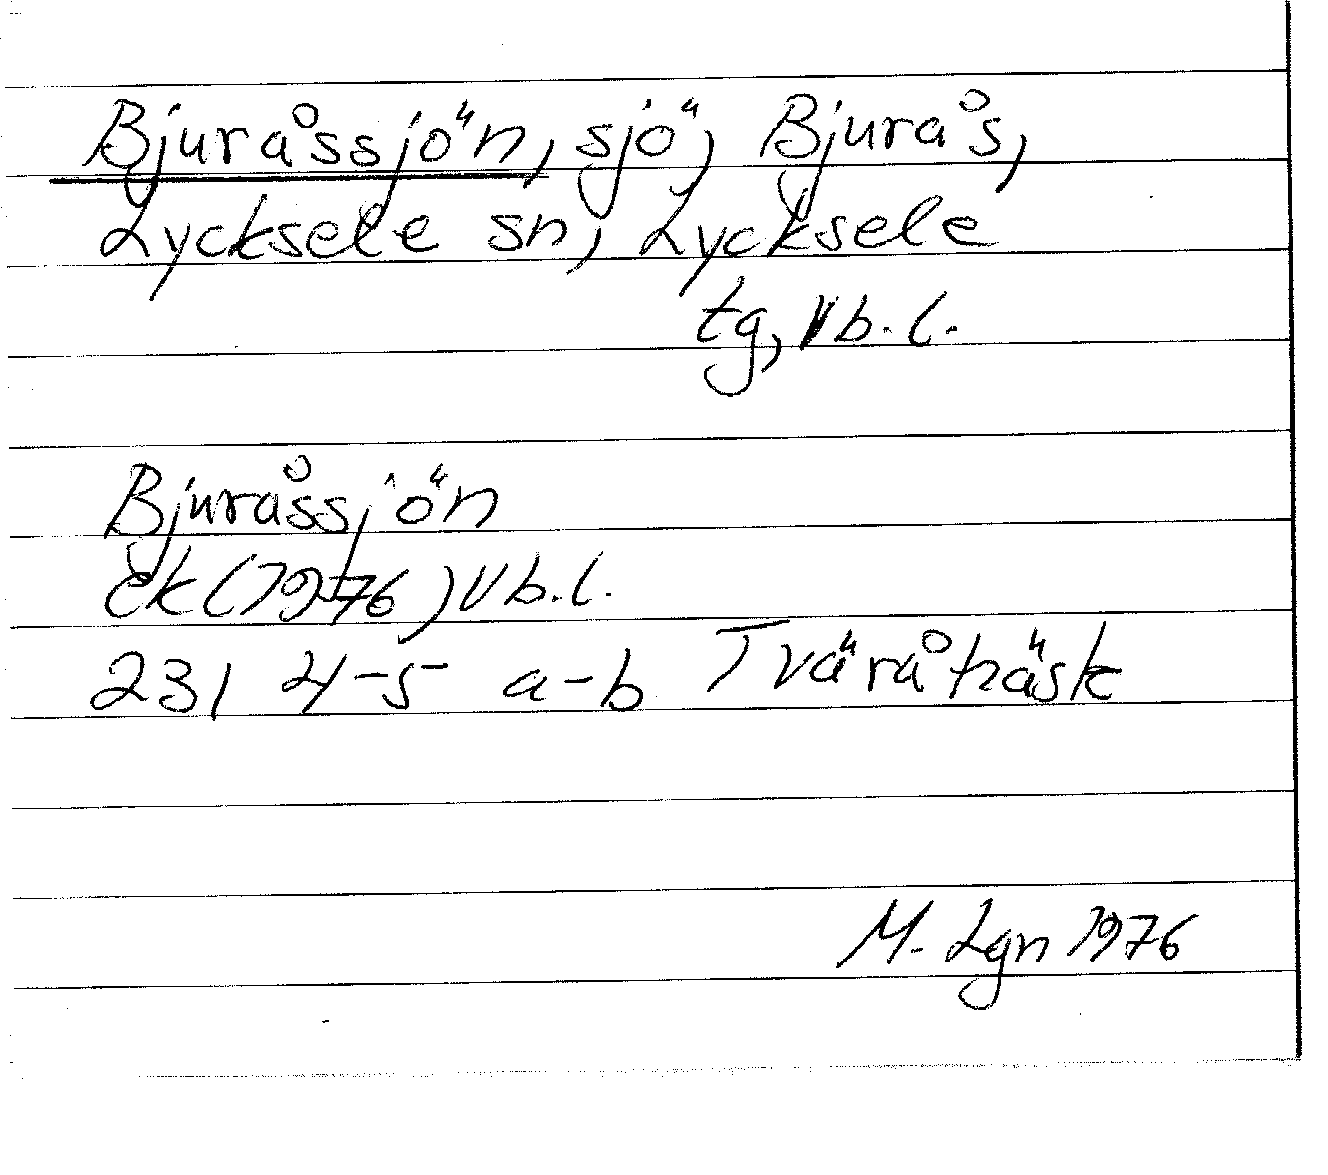 Bjuråssjön, sjö, Bjurås,
Lycksele sn, Lycksele
tg, Vb.l.
Bjuråssjön
Ek (1976) Vb.l.
231 4-5 a-b Tväråträsk
M. Lgn 1976